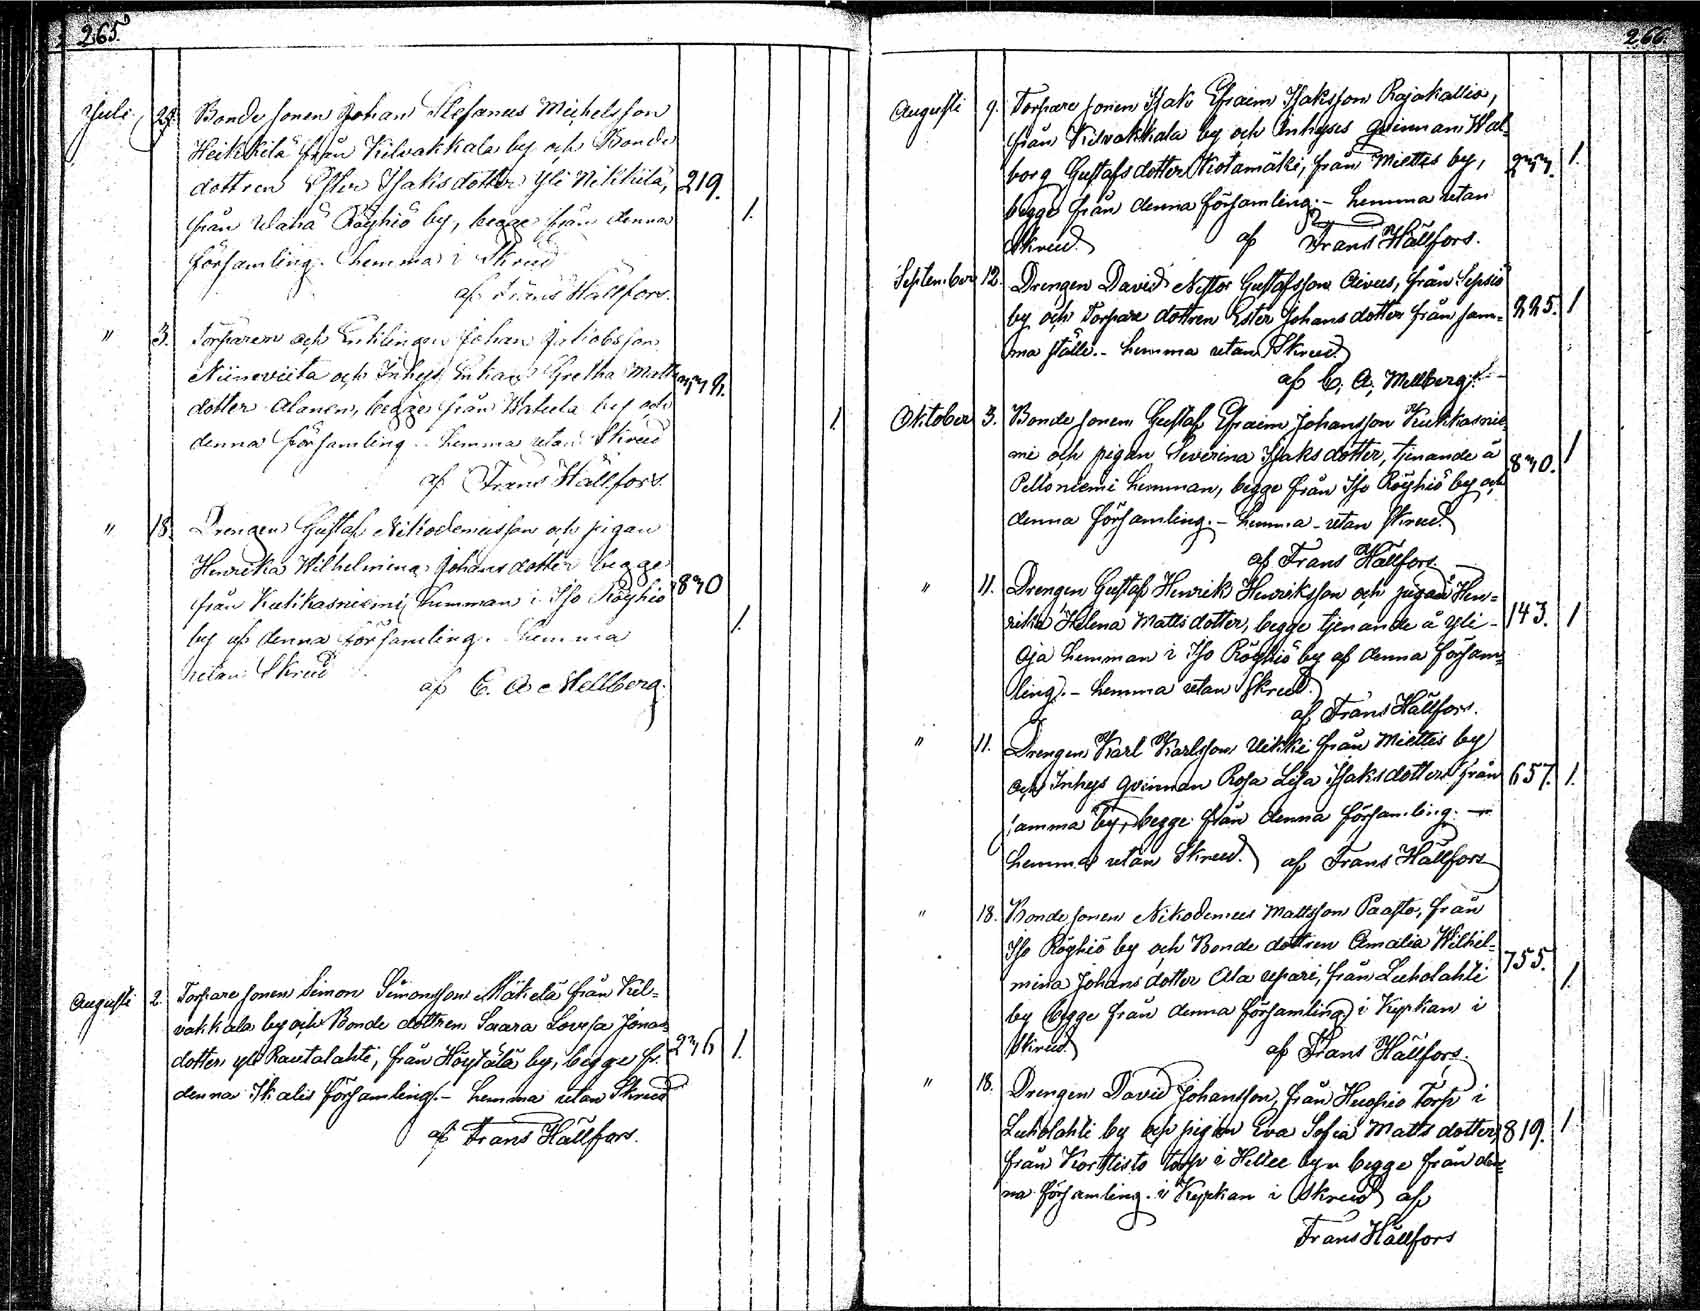 265.
Juli 29. Bonde sonen Johan Stefanus Michelsson
Heikkilä från Kilvakkala by och Bonde
dottren Ester Isaksdotter Yli Nikkilä, 219.
från Vaha Röyhiö by, begge från denna 1.
församling. hemma i Skrud
af Frans Hällfors.
" 3. Torparen och Enklingen Johan Jakobsson
Niineviita och Inhys Enkan Gretha Matts
dotter Alanen, begge från by och
denna församling. hemma utan Skrud 1
af Frans Hällfors
" 18. Drengen Gustaf Nikodemusson och pigan
Henrika Wilhelmina Johansdotter begge
från Kukkasniemi hemman i Iso Röyhiö 830
by af denna församling. hemma 1.
utan Skrud
af C. A. Mellberg.
Augusti 2. Torpare sonen Simon Simonsson Mäkelä från Kil=
vakkala by och Bonde dottren Saara Lovisa Jonas
dotter yli Rautalahti, från Höytälä by, begge fr. 236 1.
denna Ikalis församling. - hemma utan Skrud
af Frans Hällfors.
266.
Augusti 9. Torpare sonen Isak Efraim Isaksson Rajakallio,
från Kilvakkala by och Inhyses qvinnan Wal=
borg Gustafsdotter Kotamäki, från Miettis by, 277. 1.
begge från denna församling. - hemma utan
Skrud. af Frans Hällfors.
September 12. Drengen David Nestor Gustafsson Oivus, från Sepsiö
by och Torpare dottren Ester Johansdotter från sam= 225. 1
ma ställe. - hemma utan Skrud.
af C. A. Mellberg.
Oktober 3. Bonde sonen Gustaf Efraim Johansson Kukkasnie
mi och pigan Severina Isaksdotter, tjenande å 830. 1
Peltoniemi hemman, begge från Iso Röyhiö by och
denna församling. - hemma - utan Skrud.
af Frans Hällfors.
" 11. Drengen Gustaf Henrik Henriksson och pigan Hen=
rika Helena Mattsdotter, begge tjenande å yli - 143. 1
Oja hemman i Iso Röyhiö by af denna försam=
ling. - hemma utan Skrud.
af Frans Hällfors.
" 11. Drengen Karl Karlsson Ukki från Miettis by
och Inhys qvinnan Rosa Lisa Isaksdotter från 657. 1.
samma by, begge från denna församling. -
hemma utan Skrud. af Frans Hällfors
" 18. Bonde sonen Nikodemus Mattsson Paasto, från
Iso Röyhiö by och Bonde dottren Amalia Wilhel=
mina Johansdotter Ala Upari, från Luholahti 755. 1.
by begge från denna församling i Kyrkan i
Skrud. af Frans Hällfors.
" 18. Drengen David Johansson, från Huopio Torp i
Luholahti by och pigan Eva Sofia Matts dotter 819. 1
från Korttisto torp i by begge från den=
na församling. i Kyrkan i Skrud af
Frans Hällfors